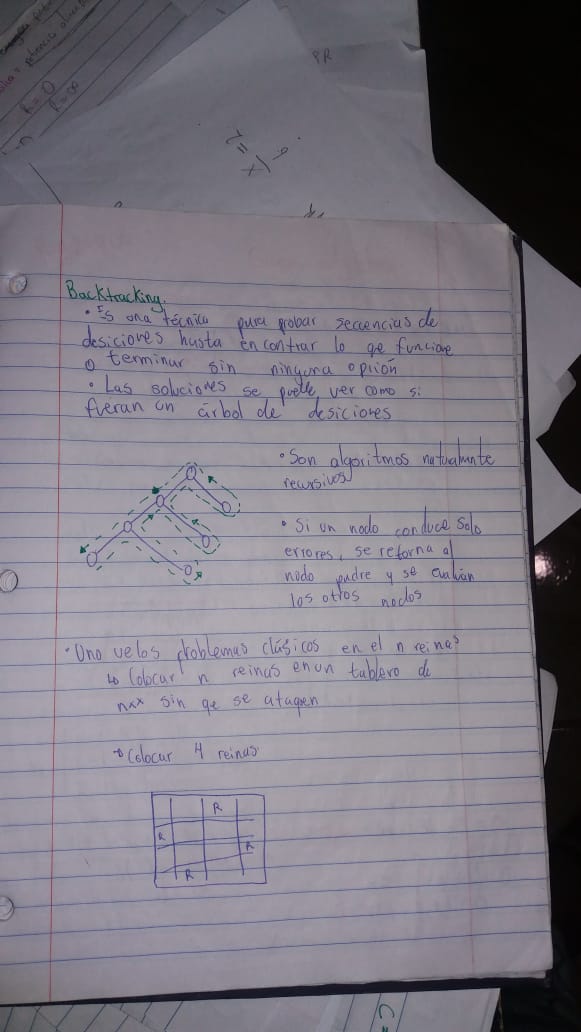 Backtracking.
• Es una técnica para probar seccencias de
desiciones hasta encontrar lo qe funcione
o terminar sin ninguna opción
• Las soluciones se puede ver como si
fueran un árbol de desiciones
• Son algoritmos naturalmente
recursivos
• Si un nodo conduce solo
errores, se retorna al
nodo padre y se evalúan
los otros nodos
• Uno de los problemas clásicos en el n reinas
↳ Colocar n reinas en un tablero de
nxx sin qe se ataqen
→ Colocar 4 reinas
R
R
R
R
PR